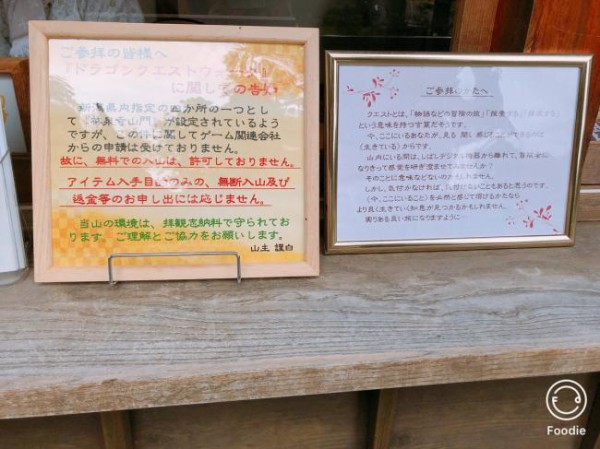 ご参拝の皆様へ
『ドラゴンクエストウォーク』
に関しての告知
新潟県内指定の四か所の一つとし
て 山門』が設定されているよう
ですが、この件に関してゲーム関連会社
からの申請は受けておりません。
故に、無料での入山は、許可しておりません。
アイテム入手目的のみの、無断入山及び
返金等のお申し出には応じません。
当山の環境は、拝観志納料で守られてお
ります。ご理解とご協力をお願いします。
山主 謹白
ご参拝のかたへ
クエストとは、「物語などの冒険の旅」「探索する」
という意味を持つ言葉だそうです。
今、ここにいるあなたが、見る 聞く 感じることができるのは
〈生きている〉からです。
山内にいる間は、しばしデジタル機器から離れて、冒険者に
なりきって感覚を研ぎ澄ませてみませんか？
そのことに意味などないのかもしれません。
しかし、気付かなければ、 こともあると思うのです。
〈今、ここにいること〉を必然と感じて頂けるかたなら
より良く生きていく知恵が見つかるかもしれません。
実りある良い旅になりますように…
Foodie